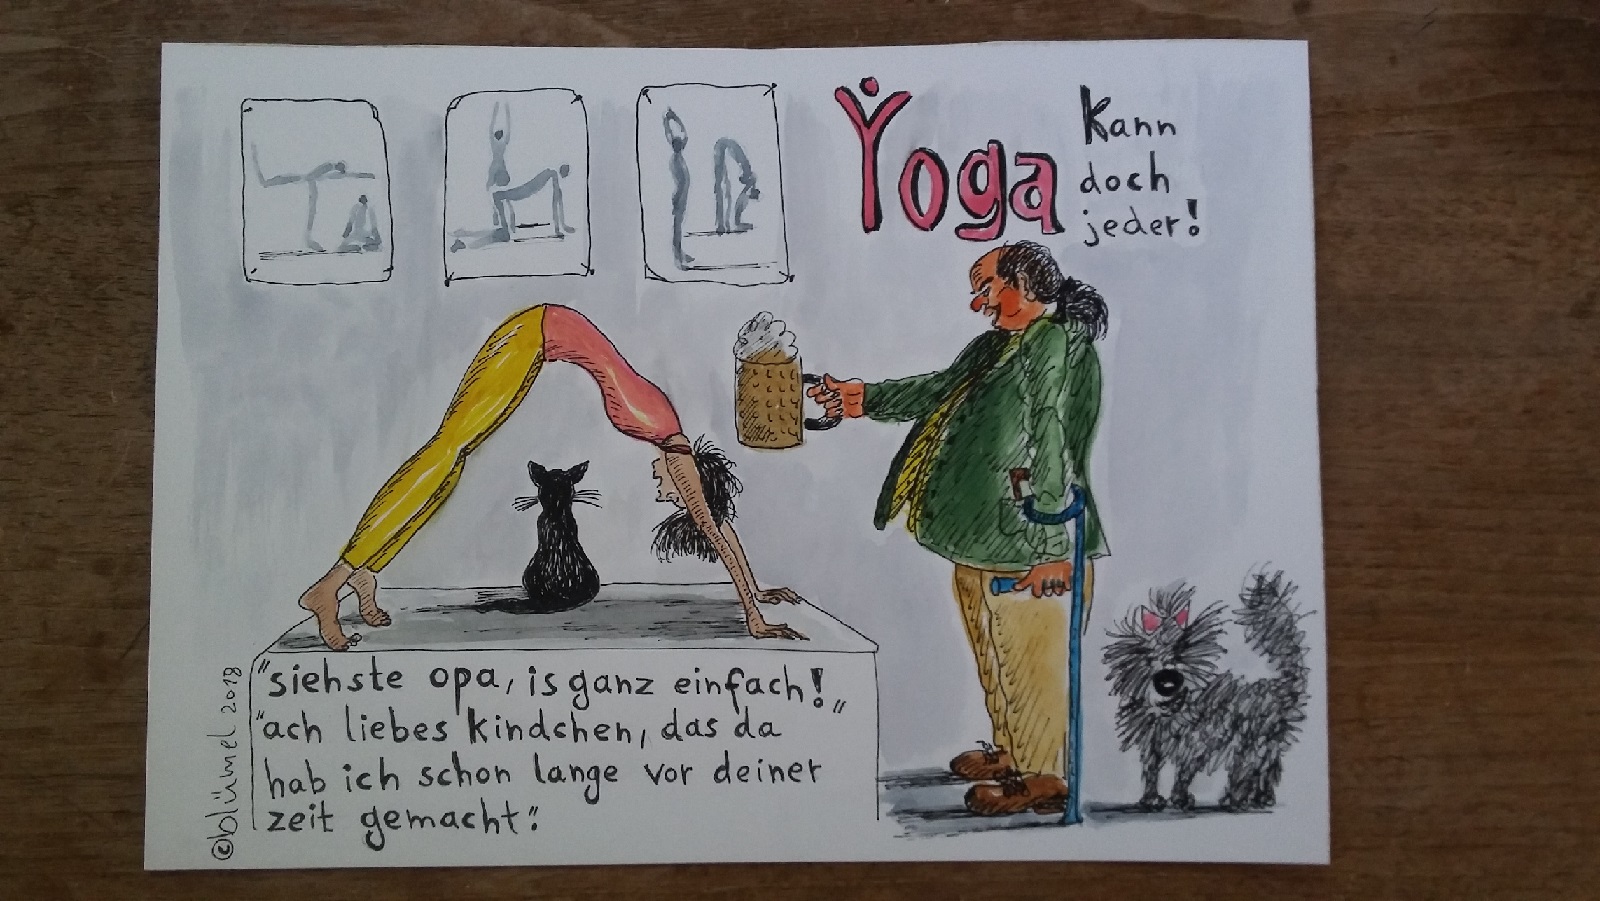 Yoga
Kann
doch
jeder!
"siehste opa, is ganz einfach!"
"ach liebes kindchen, das da
hab ich schon lange vor deiner
zeit gemacht."
©blümel 2018